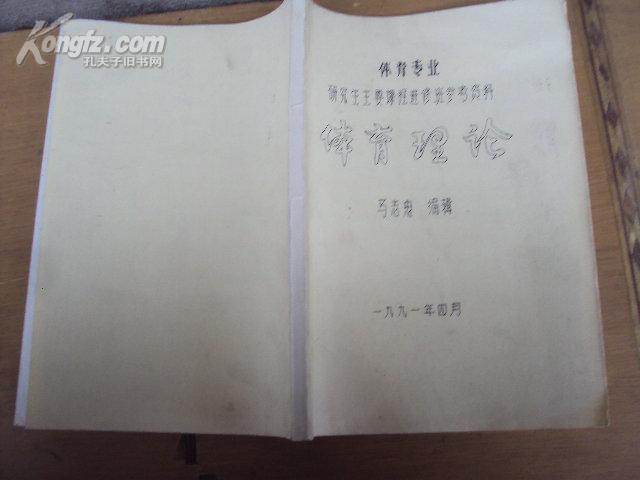 Kongfz.com
孔夫子旧书网
体育专业
研究生主要课程进修班参考资料
体育理论
马志 编辑
一九九一年四月